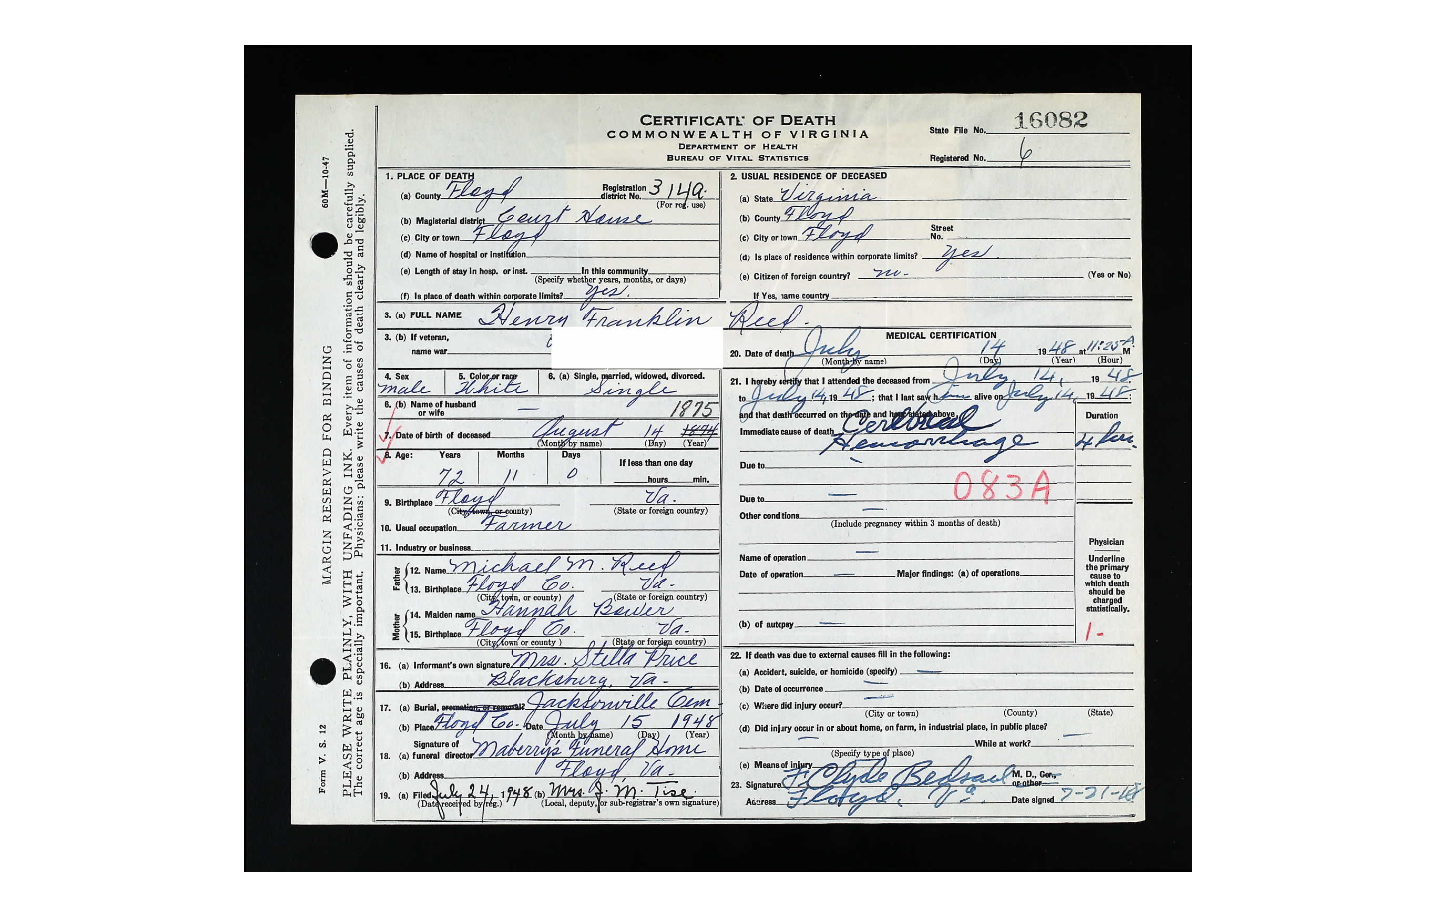 CERTIFICATE OF DEATH
COMMONWEALTH OF VIRGINIA
DEPARTMENT OF HEALTH
BUREAU OF VITAL STATISTICS
State File No. 16082
Registered No. 6
60M—10-47
MARGIN RESERVED FOR BINDING
Form V. S. 12
PLEASE WRITE PLAINLY, WITH UNFADING INK. Every item of information should be carefully supplied.
The correct age is especially important. Physicians: please write the causes of death clearly and legibly.
1. PLACE OF DEATH
(a) County Floyd Registration district No. 3149. (For reg. use)
(b) Magisterial district Court House
(c) City or town Floyd
(d) Name of hospital or institution
(e) Length of stay in hosp. or inst. In this community
(Specify whether years, months, or days)
(f) Is place of death within corporate limits? Yes.
2. USUAL RESIDENCE OF DECEASED
(a) State Virginia
(b) County Floyd
(c) City or town Floyd Street No.
(d) Is place of residence within corporate limits? Yes.
(e) Citizen of foreign country? no- (Yes or No)
If Yes, name country
3. (a) FULL NAME Henry Franklin Reed.
3. (b) If veteran, name war
4. Sex male
5. Color or race White
6. (a) Single, married, widowed, divorced. Single
6. (b) Name of husband or wife —
1875
7. Date of birth of deceased August 14 1874
(Month by name) (Day) (Year)
8. Age: Years Months Days If less than one day
72 11 0 hours min.
9. Birthplace Floyd Va.
(City, town, or county) (State or foreign country)
10. Usual occupation Farmer
11. Industry or business
Father
12. Name Michael M. Reed
13. Birthplace Floyd Co. Va-
(City, town, or county) (State or foreign country)
Mother
14. Maiden name Hannah Bower
15. Birthplace Floyd Co. Va-
(City, town or county) (State or foreign country)
16. (a) Informant's own signature Mrs. Stella Price
(b) Address Blacksburg, Va-
17. (a) Burial, cremation, or removal? Jacksonville Cem-
(b) Place Floyd Co. Date July 15 1948
(Month by name) (Day) (Year)
18. (a) Signature of funeral director Maberry's Funeral Home
(b) Address Floyd, Va-
19. (a) Filed July 24, 1948 (b) Mrs. J. M. Tise.
(Date received by reg.) (Local, deputy, or sub-registrar's own signature)
MEDICAL CERTIFICATION
20. Date of death July 14 1948 at 11:25A M
(Month by name) (Day) (Year) (Hour)
21. I hereby certify that I attended the deceased from July 14, 1948.
to July 14, 1948; that I last saw him alive on July 14, 1948;
and that death occurred on the date and hour stated above.
Duration
Immediate cause of death Cerebral
Hemorrhage 4 hrs.
Due to —
Due to — 083A
Other conditions —
(Include pregnancy within 3 months of death)
Name of operation —
Date of operation — Major findings: (a) of operations
(b) of autopsy —
Physician
Underline the primary cause to which death should be charged statistically.
1-
22. If death was due to external causes fill in the following:
(a) Accident, suicide, or homicide (specify) —
(b) Date of occurrence —
(c) Where did injury occur? —
(City or town) (County) (State)
(d) Did injury occur in or about home, on farm, in industrial place, in public place? —
— While at work?
(Specify type of place)
(e) Means of injury
23. Signature F. Clyde Bedsaul M. D., Cor. or other
Address Floyd, Va. Date signed 7-21-48